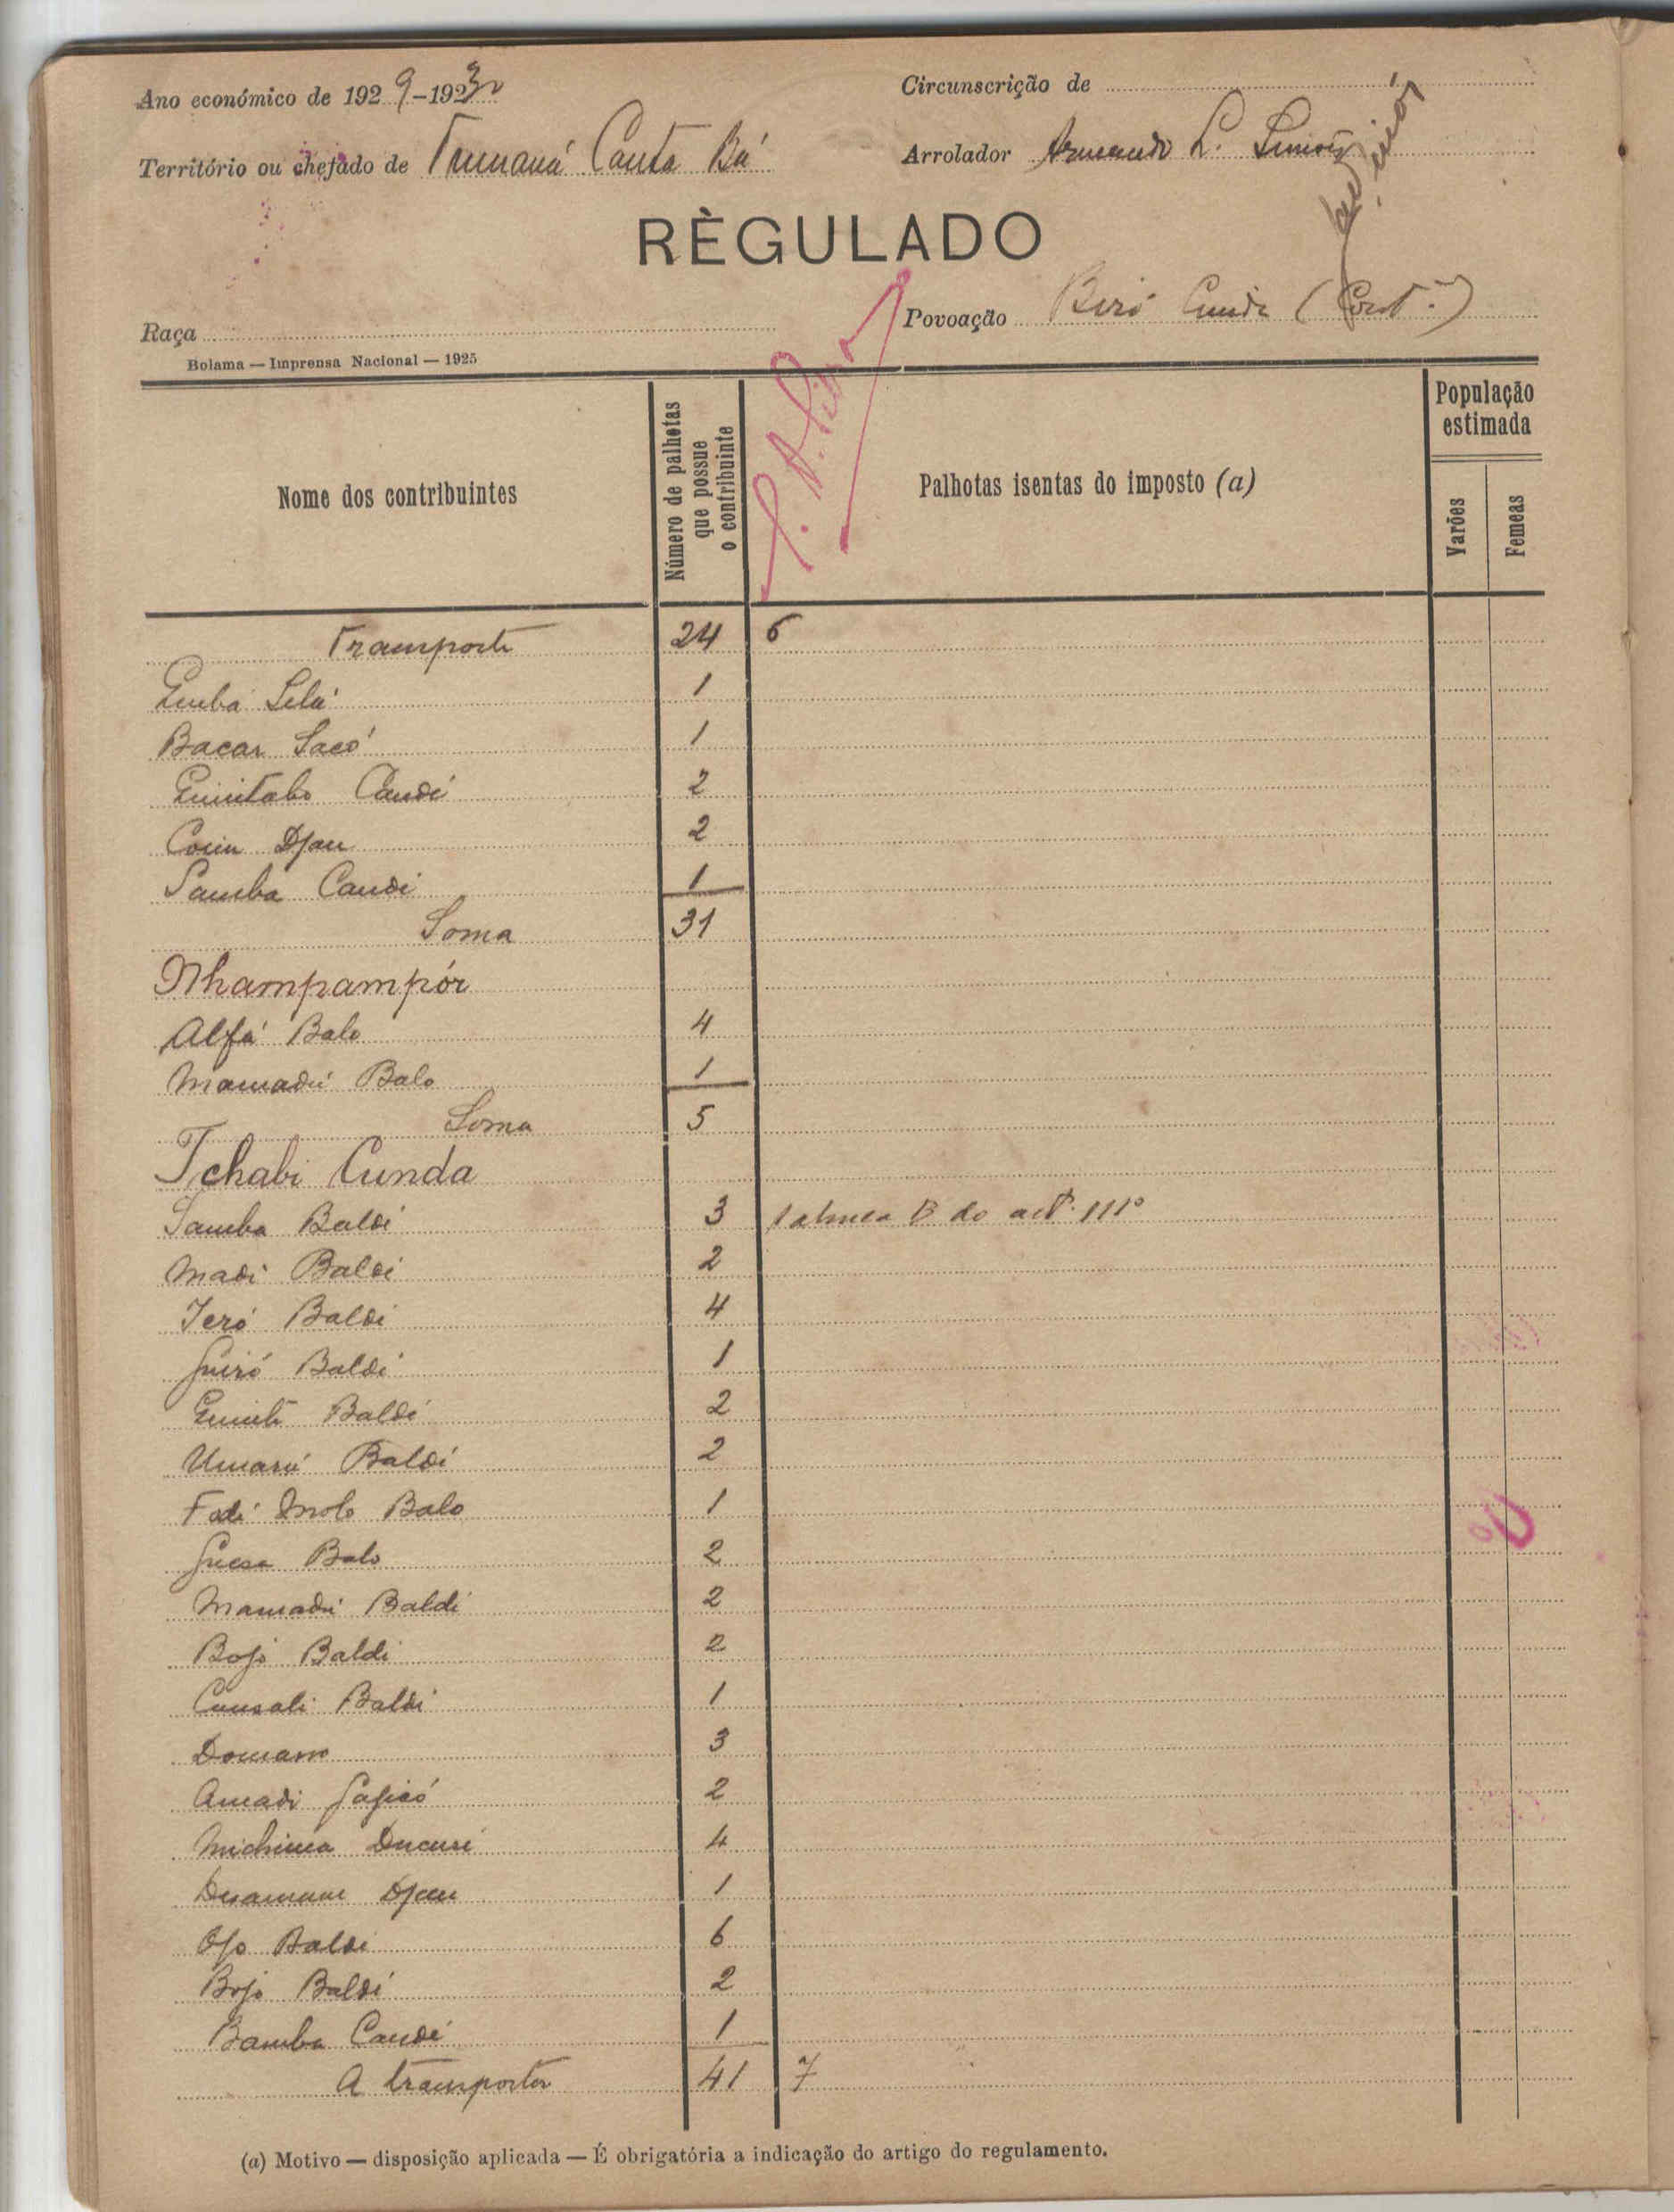 Ano económico de 1929-1930
Circunscrição de
Território ou chefado de Tumaná Canta Bá
Arrolador Armando L. Simões
RÈGULADO
Raça
Povoação Biró Cunda (Cont.)
Bolama — Imprensa Nacional — 1925
Nome dos contribuintes
Número de palhotas que possue o contribuinte
Palhotas isentas do imposto (a)
População estimada
Varões
Femeas
Transporte 24 6
Sela 1
Bacar Sacó 1
Candé 2
Djau 2
Samba Candi 1
Soma 31
Nhampampór
Alfá Balo 4
Mamadú Balo 1
Soma 5
Tchabi Cunda
Samba Baldé 3 1 alinea B do artº. 111º
Madi Baldé 2
Jeró Baldé 4
Guiró Baldé 1
Baldé 2
Umarú Baldé 2
Fodé Balo 1
Balo 2
Mamadú Baldé 2
Bojo Baldé 2
Cunsali Baldi 1
3
Amadi 2
4
Djau 1
Ojo Baldé 6
Bojo Baldé 2
Bamba Candé 1
A transportar 41 7
(a) Motivo — disposição aplicada — É obrigatória a indicação do artigo do regulamento.